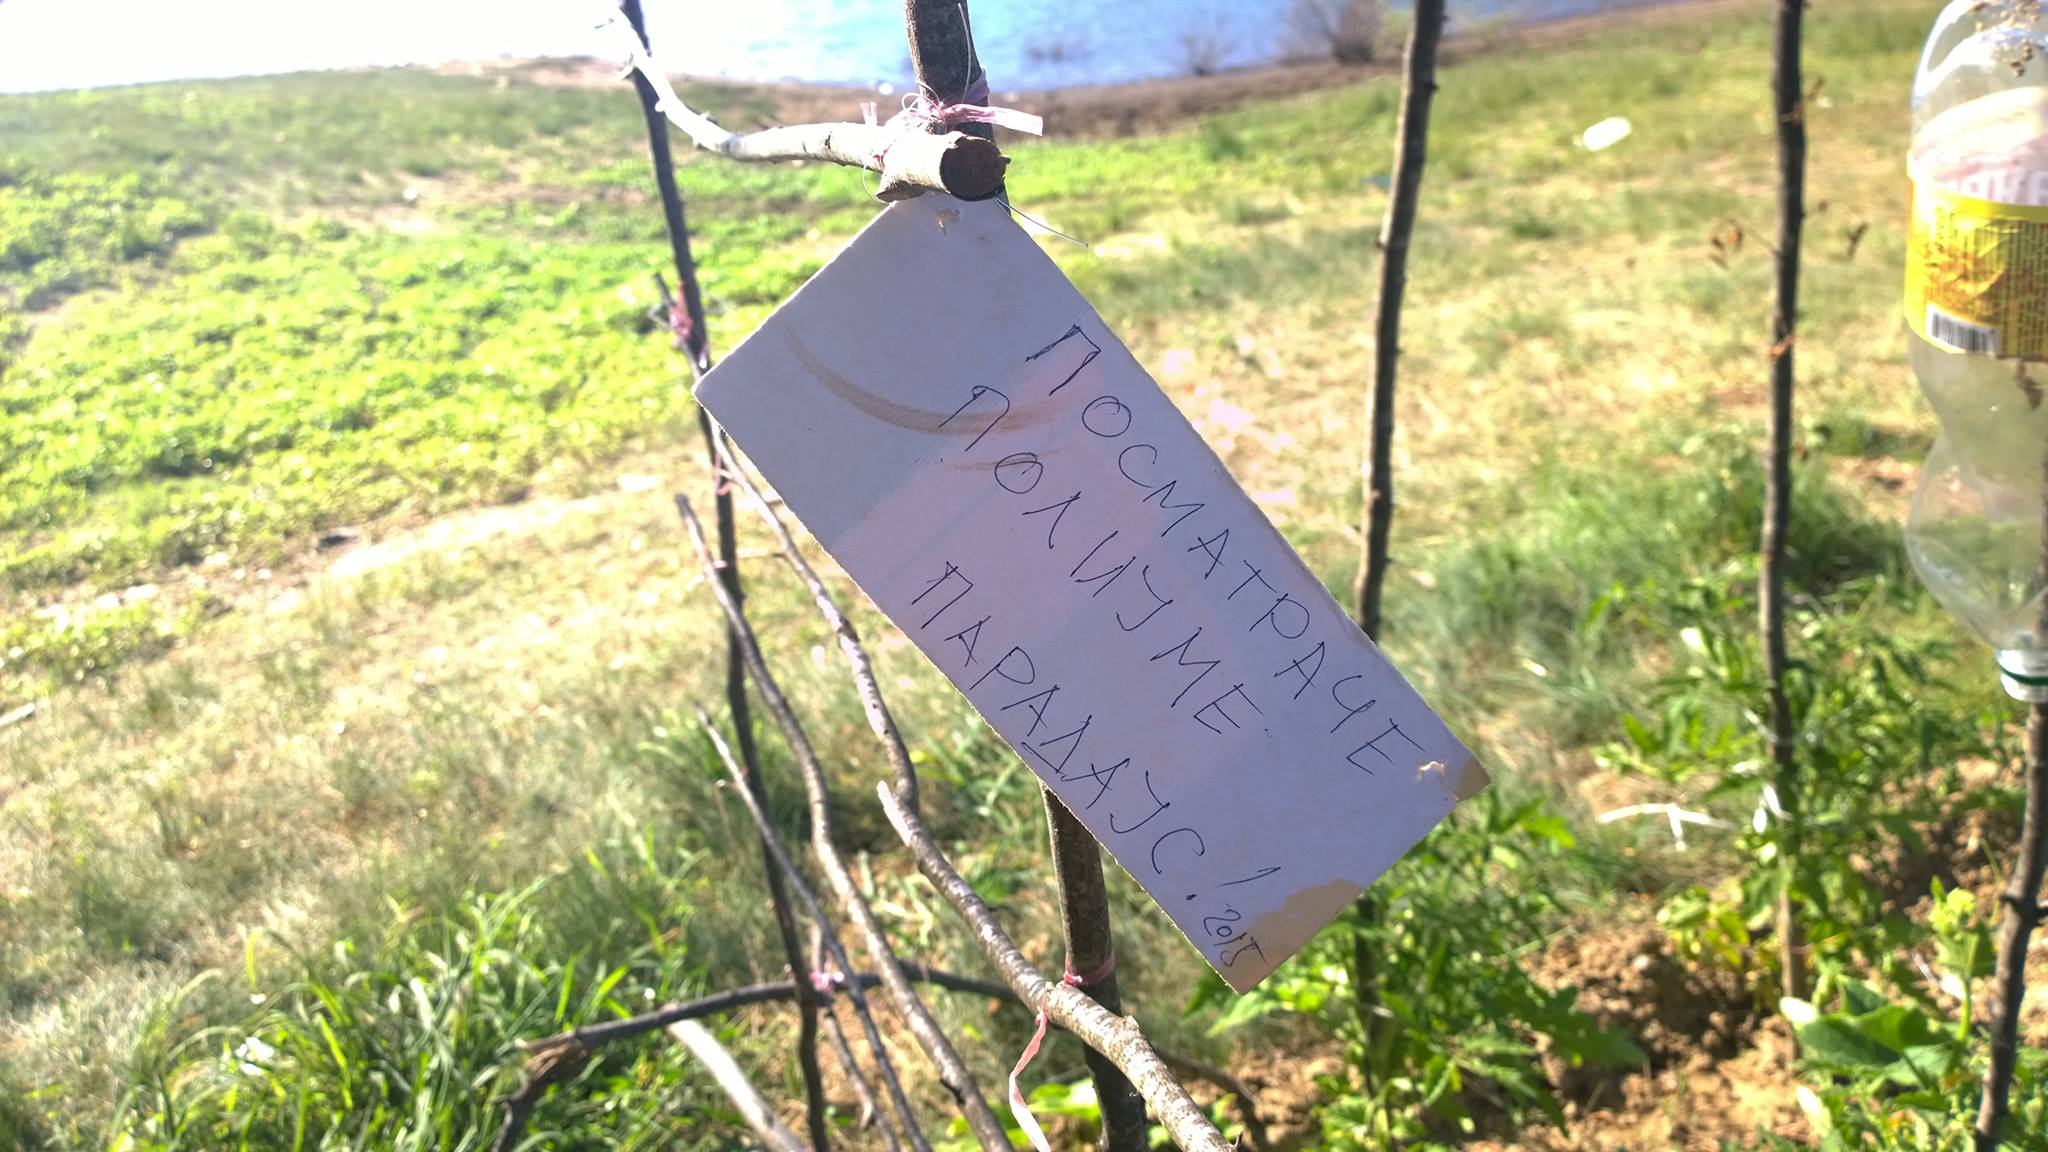 ПОСМАТРАЧЕ
ПОЛИЈ МЕ
ПАРАДАЈС!